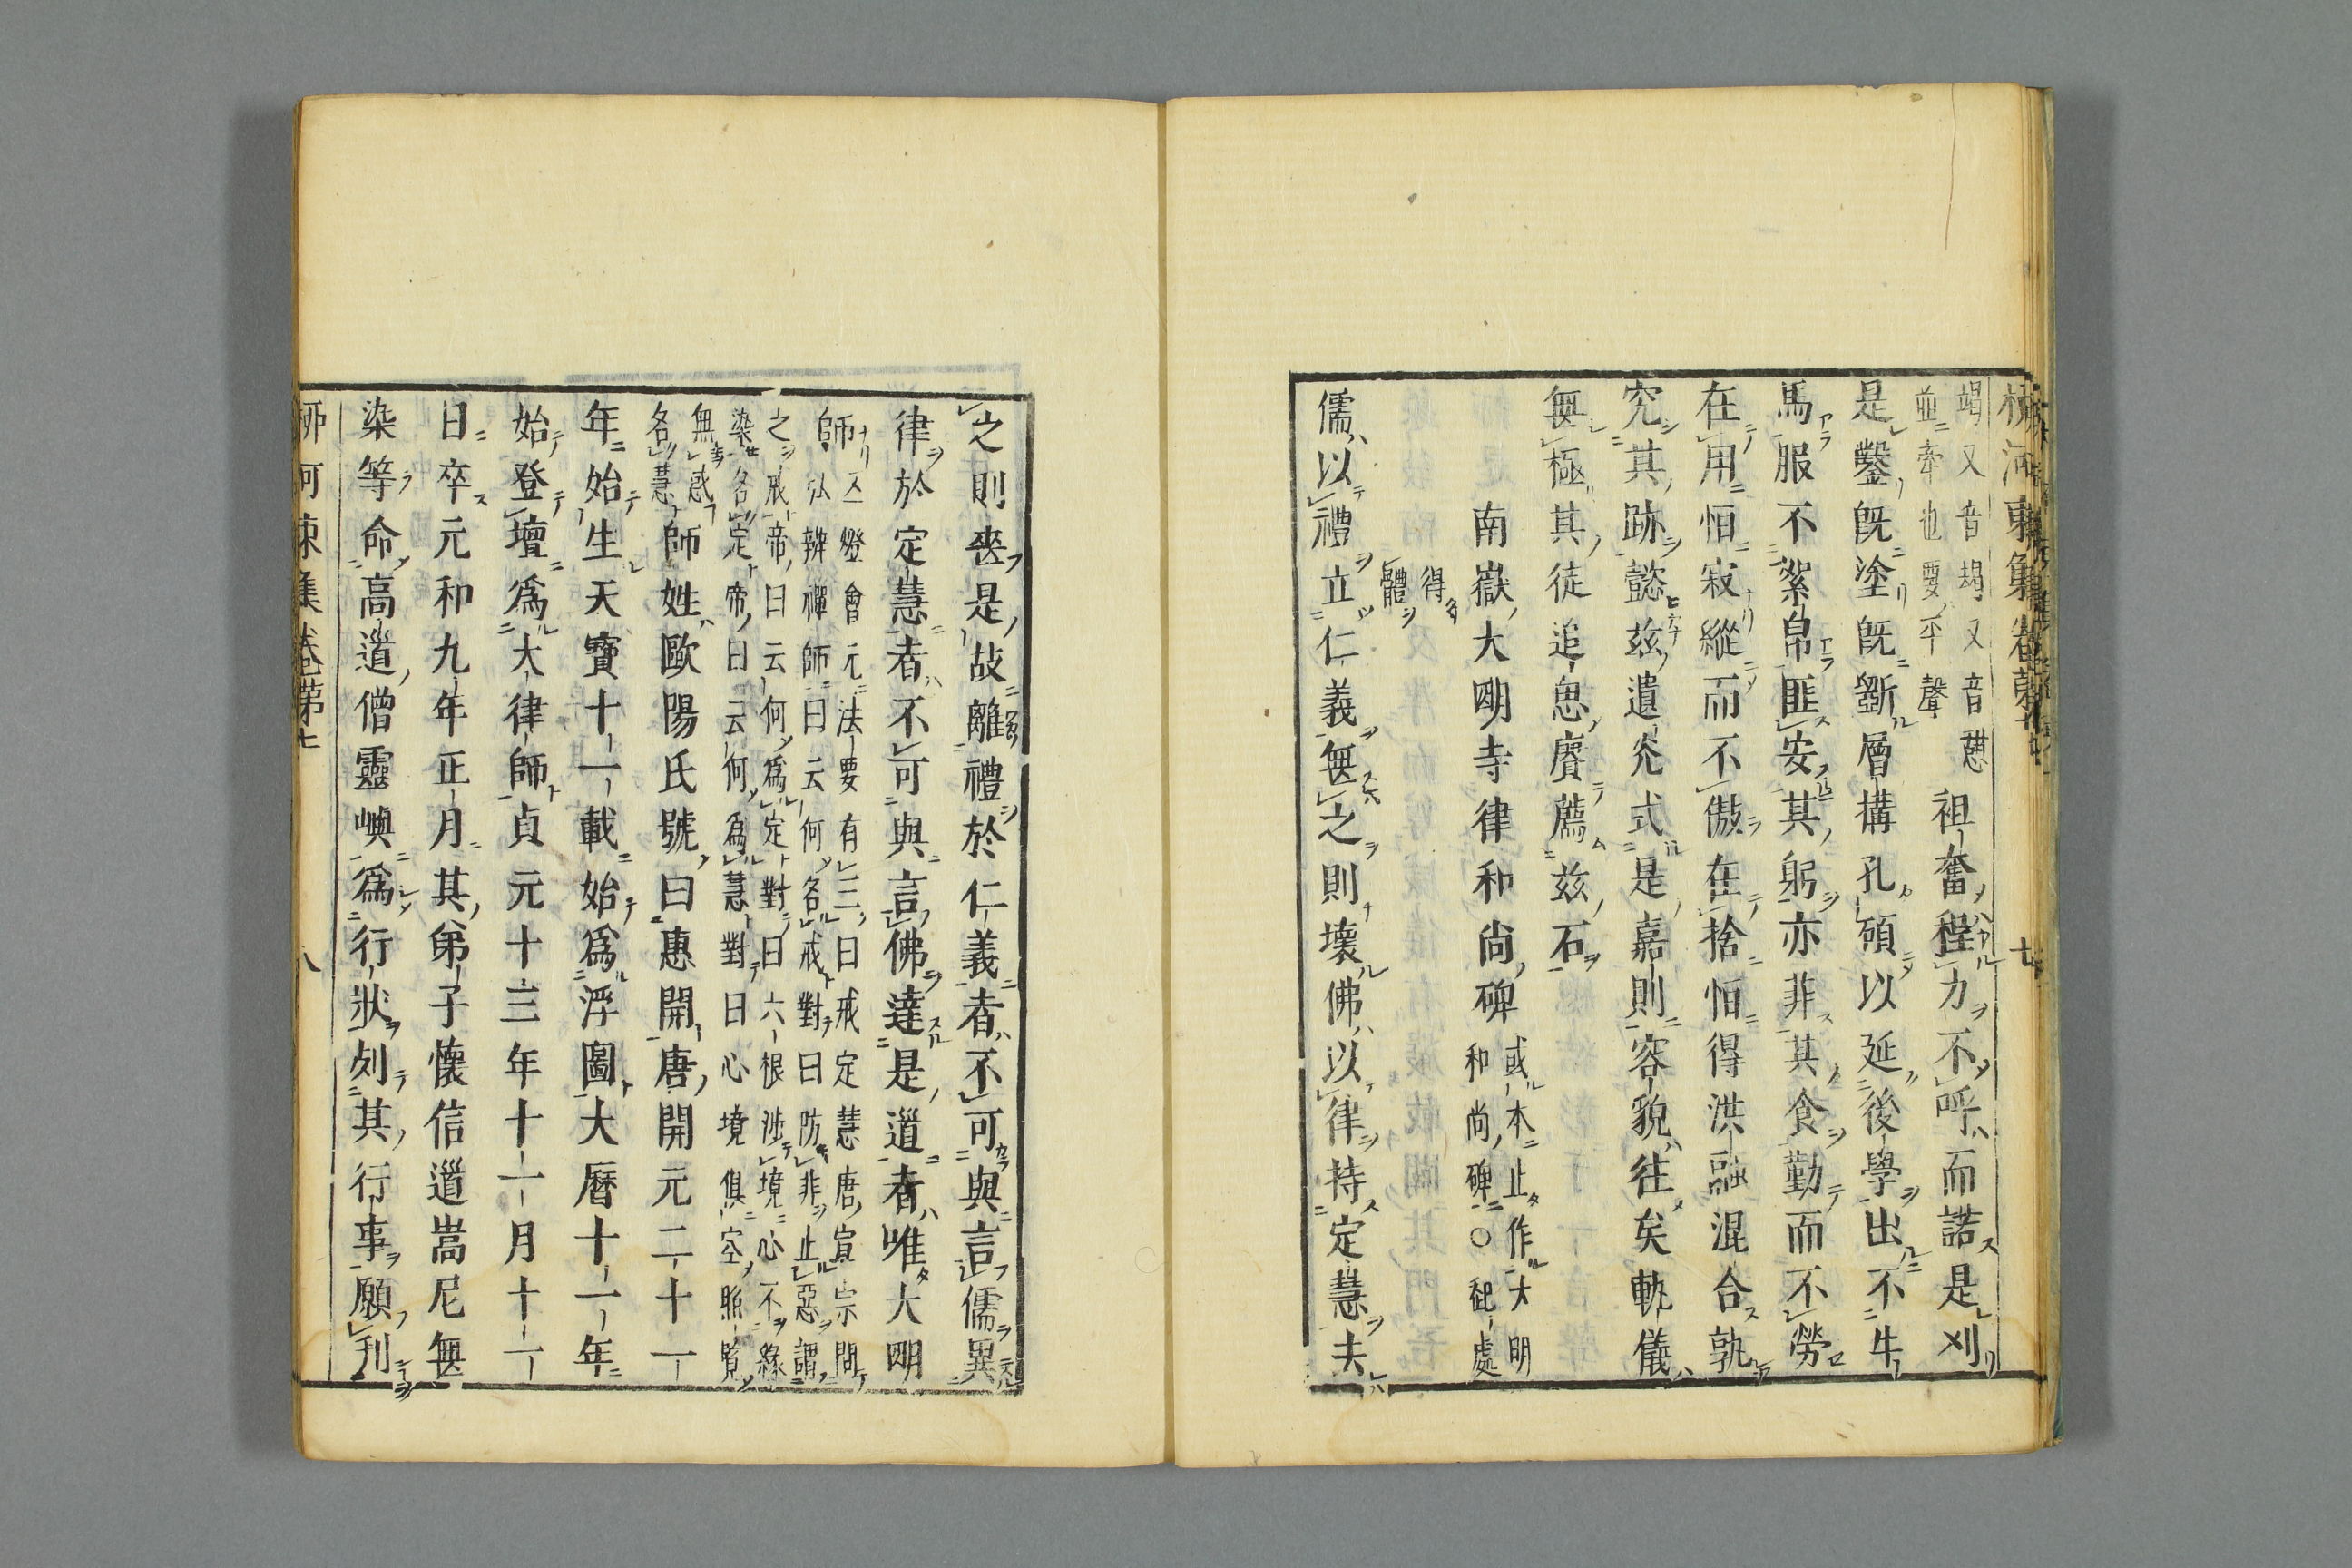 柳河東集卷第七
七
竭又音朅又音憩
並牽也要平聲
祖奮程力不呼而諾是刈
是鑿既塗既斵層構孔碩以延後學出不牛
馬服不絮帛匪安其躬亦非其食勤而不勞
在用恒寂縱而不傲在捨恒得洪融混合孰
究其跡懿兹遺光式是嘉則容貌往矣軌儀
無極其徒追思賡薦兹石
南嶽大明寺律和尚碑
或本止作大明
和尚碑○起處
得
體
儒以禮立仁義無之則壞佛以律持定慧夫
之則喪是故離禮於仁義者不可與言儒異
律於定慧者不可與言佛達是道者唯大明
師
五燈會元法要有三曰戒定慧唐宣宗問
弘辨禪師曰云何名戒對曰防非止惡謂
之戒帝曰云何爲定對曰六根涉境心不緣
染名定帝曰云何爲慧對曰心境俱空照覽
無惑
名慧
師姓歐陽氏號曰惠開唐開元二十一
年始生天寶十一載始爲浮圖大曆十一年
始登壇爲大律師貞元十三年十一月十一
日卒元和九年正月其弟子懷信道嵩尼無
染等命高道僧靈嶼爲行狀列其行事願刊
柳河東集卷第七
八